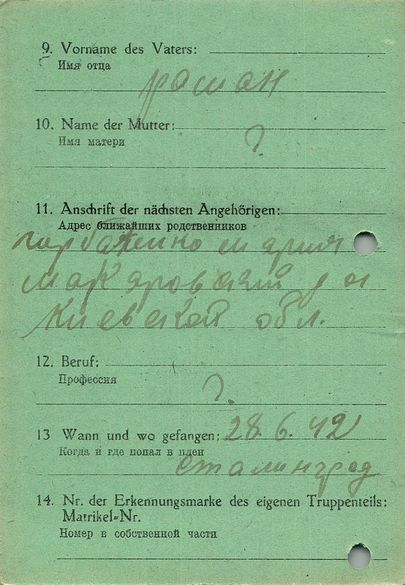 9. Vorname des Vaters:
Имя отца
роман
10. Name der Mutter:
Имя матери
?
11. Anschrift der nächsten Angehörigen:
Адрес ближайших родственников
мария
макаровский р он
Киевская обл.
12. Beruf:
Профессия
?
13 Wann und wo gefangen: 28.6.42
Когда и где попал в плен
Сталинград
14. Nr. der Erkennungsmarke des eigenen Truppenteils:
Matrikel-Nr.
Номер в собственной части